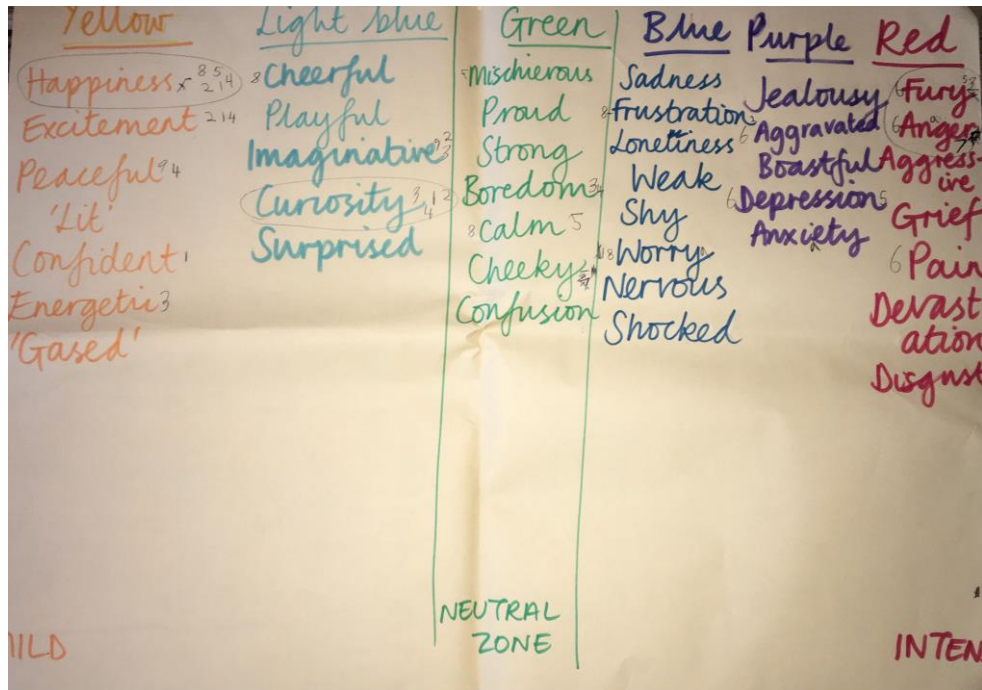 Yellow
Happiness x 8 5 2 1 4
Excitement 2 1 4
Peaceful 9 4
'Lit'
Confident 1
Energetic 3
'Gased'
MILD
Light blue
8 Cheerful
Playful
Imaginative
Curiosity 3 4 1 2
Surprised
Green
Mischievous
Proud
Strong
Boredom 3
8 Calm 5
Cheeky
Confusion
NEUTRAL
ZONE
Blue
Sadness
8 Frustration
Loneliness
Weak
Shy
Worry
Nervous
Shocked
Purple
Jealousy
6 Aggravated
Boastful
6 Depression 5
Anxiety
Red
6 Fury
6 Anger
Aggress-
ive
Grief
6 Pain
Devast
ation
Disgust
INTEN